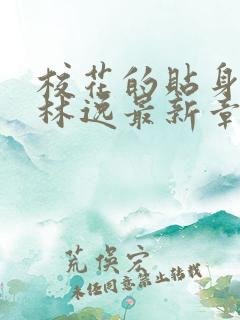 校花的貼身
林逸最新章
荒俁宏
未经同意禁止转载